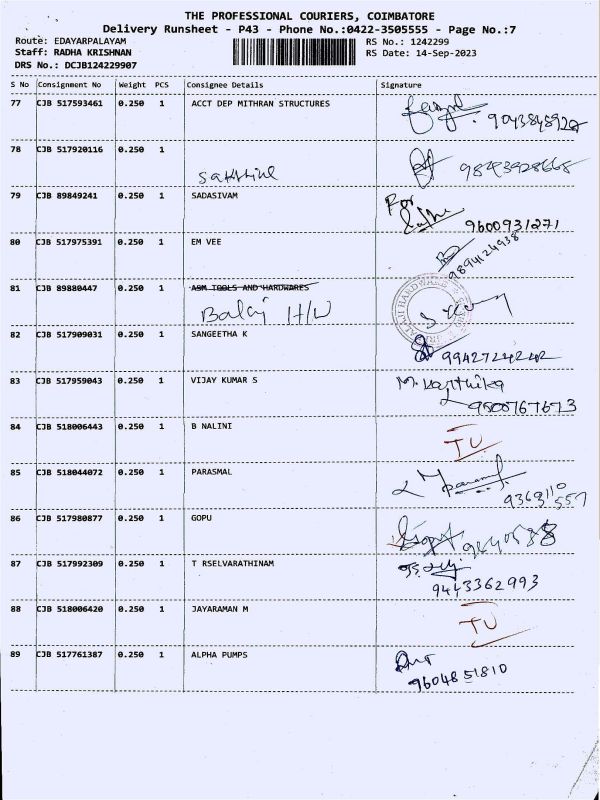 THE PROFESSIONAL COURIERS, COIMBATORE
Delivery Runsheet - P43 - Phone No.:0422-3505555 - Page No.:7
Route: EDAYARPALAYAM RS No.: 1242299
Staff: RADHA KRISHNAN RS Date: 14-Sep-2023
DRS No.: DCJB124229907
S No Consignment No Weight PCS Consignee Details Signature
77 CJB 517593461 0.250 1 ACCT DEP MITHRAN STRUCTURES
78 CJB 517920116 0.250 1
79 CJB 89849241 0.250 1 SADASIVAM
For
9600931271
80 CJB 517975391 0.250 1 EM VEE
9894124938
81 CJB 89880447 0.250 1 ASM TOOLS AND HARDWARES
Balaj H/W
82 CJB 517909031 0.250 1 SANGEETHA K
9942724242
83 CJB 517959043 0.250 1 VIJAY KUMAR S M. Karthika
9500767673
84 CJB 518006443 0.250 1 B NALINI
TU
85 CJB 518044072 0.250 1 PARASMAL
9363110
557
86 CJB 517980877 0.250 1 GOPU
87 CJB 517992309 0.250 1 T RSELVARATHINAM
9443362993
88 CJB 518006420 0.250 1 JAYARAMAN M
TU
89 CJB 517761387 0.250 1 ALPHA PUMPS
9604851810